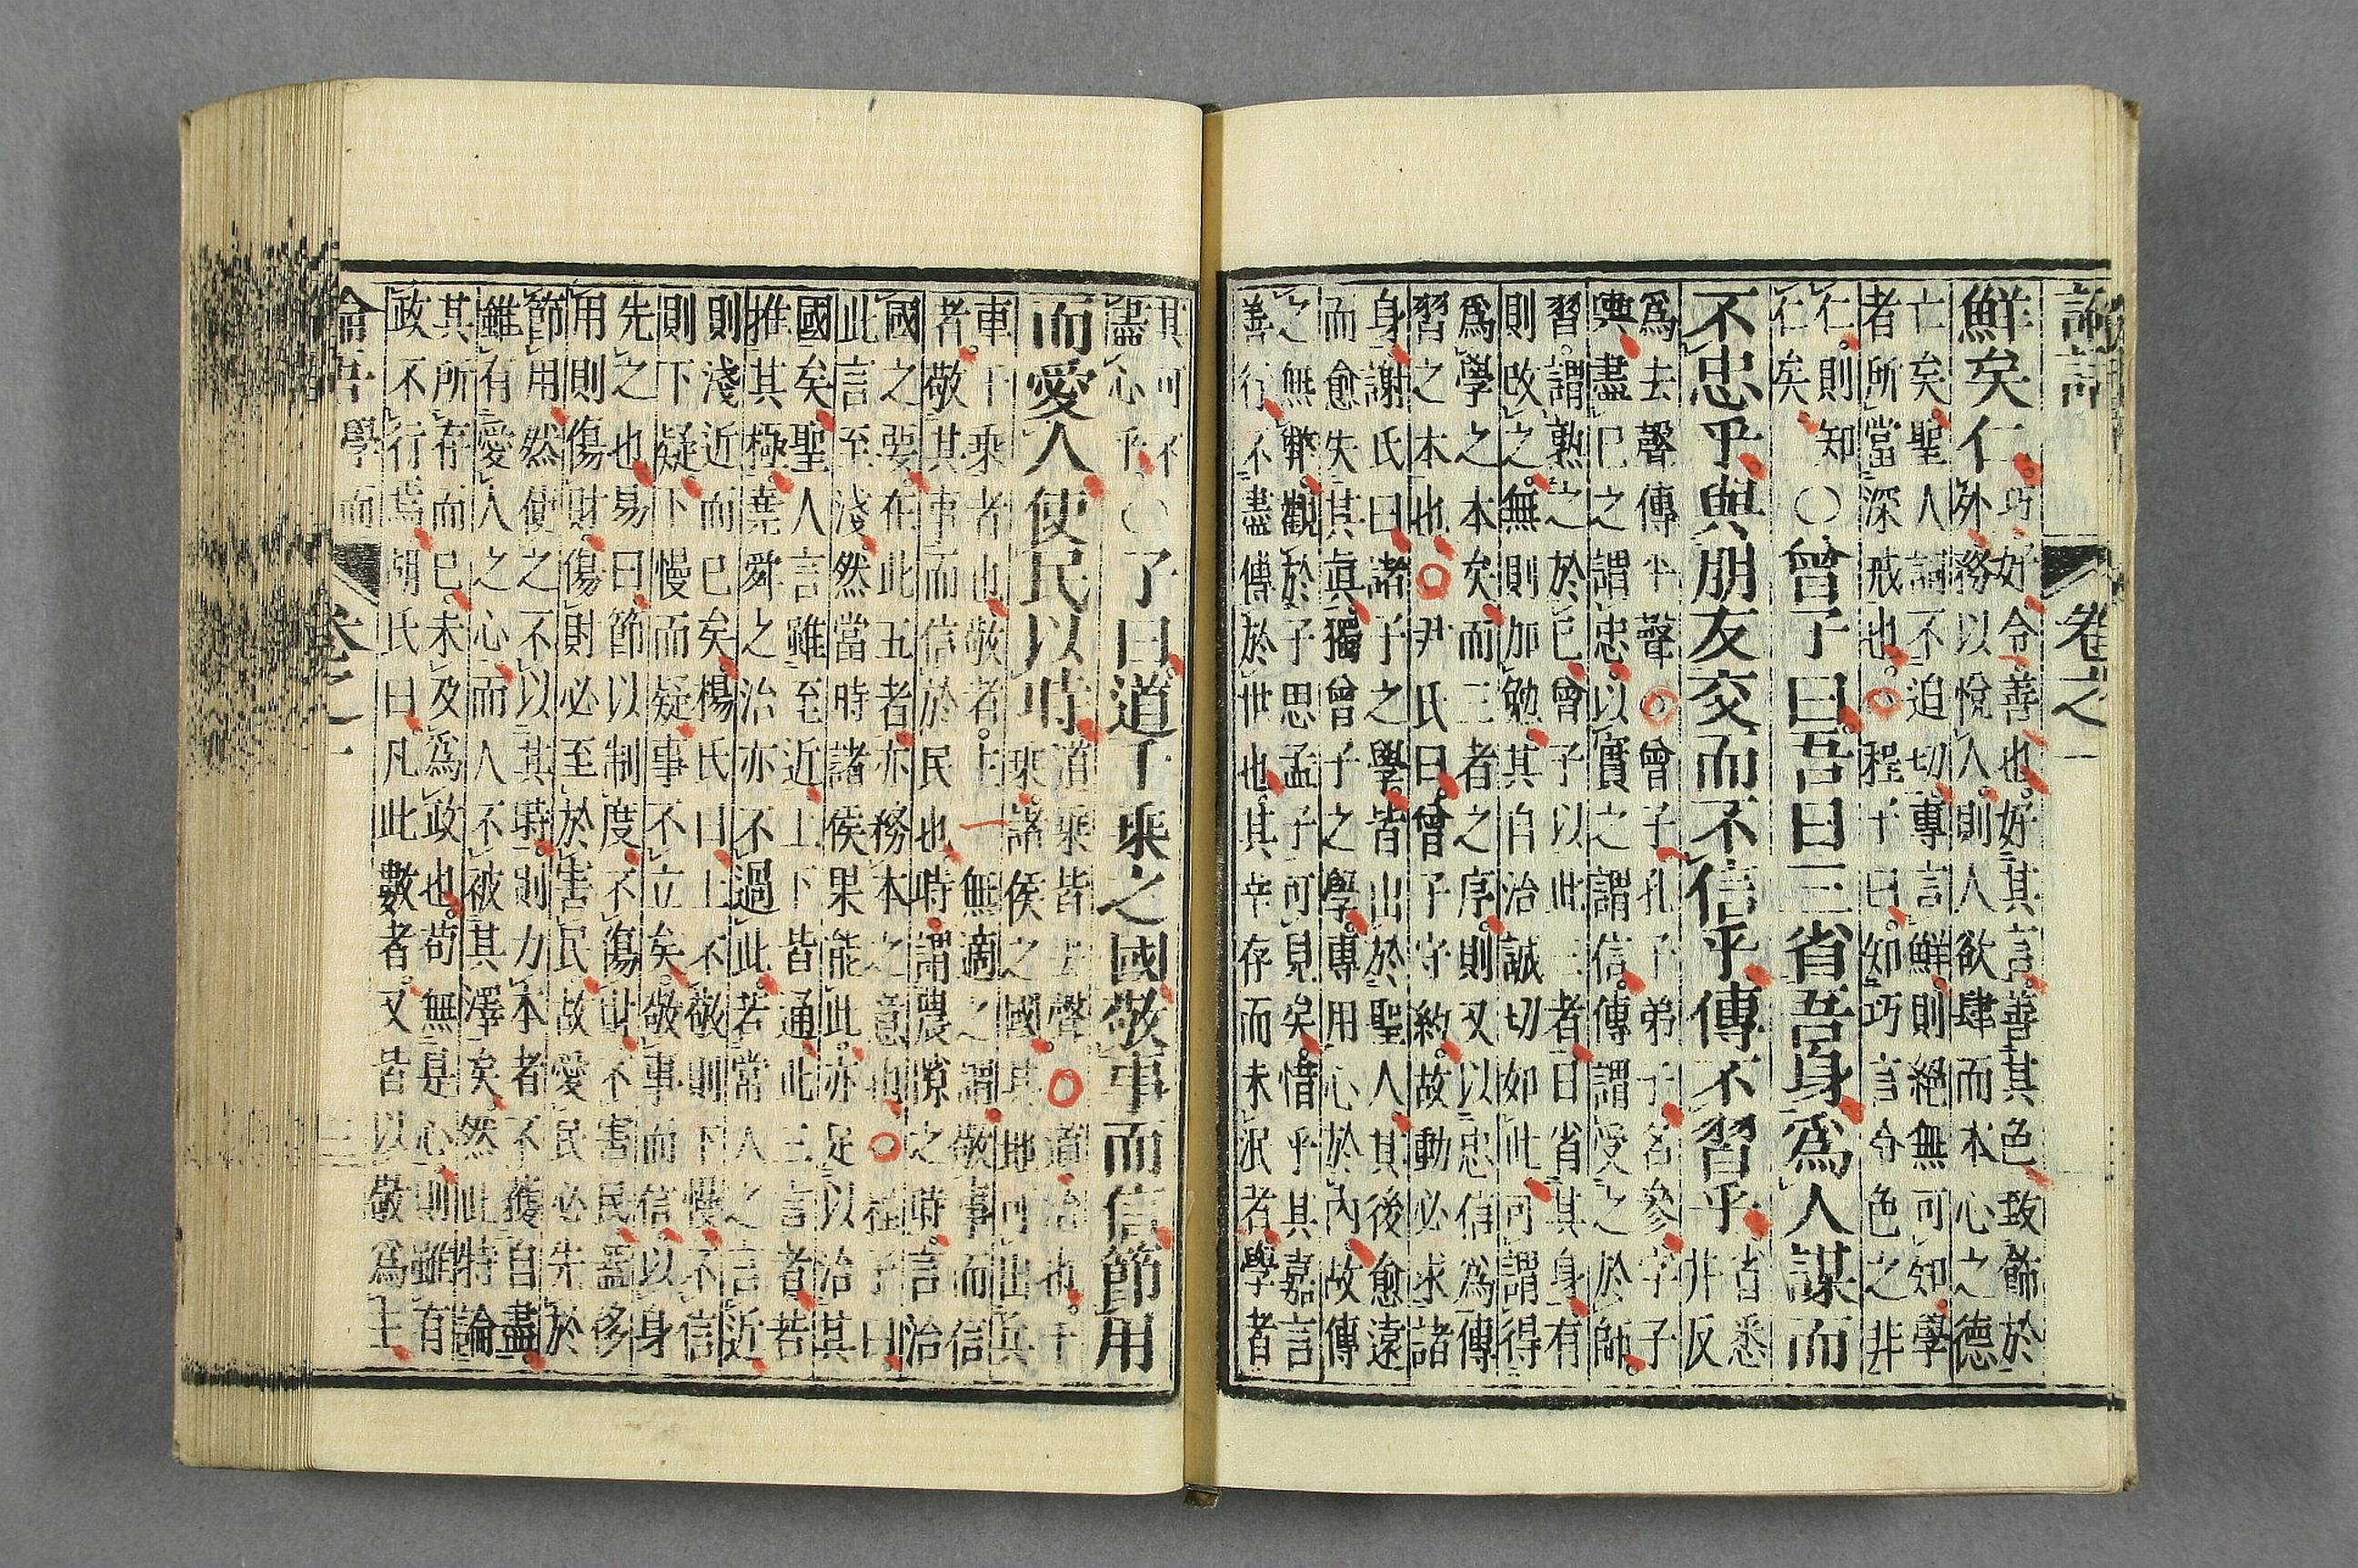 論語 卷之一
鮮矣仁
巧好令善也好其言善其色致飾於
外務以悅人則人欲肆而本心之德
亡矣聖人詞不迫切專言鮮則絕無可知學
者所當深戒也○程子曰知巧言令色之非
仁則知
仁矣
○曾子曰吾日三省吾身爲人謀而
不忠乎與朋友交而不信乎傳不習乎
省悉
井反
爲去聲傳平聲○曾子孔子弟子名參字子
輿盡己之謂忠以實之謂信傳謂受之於師
習謂熟之於己曾子以此三者日省其身有
則改之無則加勉其自治誠切如此可謂得
爲學之本矣而三者之序則又以忠信爲傳
習之本也○尹氏曰曾子守約故動必求諸
身謝氏曰諸子之學皆出於聖人其後愈遠
而愈失其眞獨曾子之學專用心於內故傳
之無弊觀於子思孟子可見矣惜乎其嘉言
善行不盡傳於世也其幸存而未泯者學者
其可不
盡心乎
○子曰道千乘之國敬事而信節用
而愛人使民以時
道乘皆去聲○道治也千
乘諸侯之國其地可出兵
車千乘者也敬者主一無適之謂敬事而信
者敬其事而信於民也時謂農隙之時言治
國之要在此五者亦務本之意也○程子曰
此言至淺然當時諸侯果能此亦足以治其
國矣聖人言雖至近上下皆通此三言者若
推其極堯舜之治亦不過此若常人之言近
則淺近而已矣楊氏曰上不敬則下慢不信
則下疑下慢而疑事不立矣敬事而信以身
先之也易曰節以制度不傷財不害民蓋侈
用則傷財傷財必至於害民故愛民必先於
節用然使之不以其時則力本者不獲自盡
雖有愛人之心而人不被其澤矣然此特論
其所存而已未及爲政也苟無是心則雖有
政不行焉胡氏曰凡此數者又皆以敬爲主
論語 學而 卷之一 三